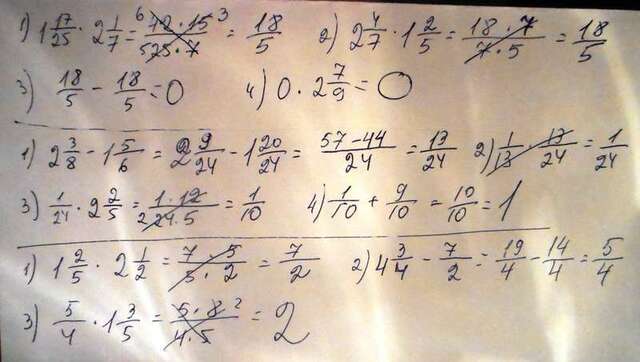 1) 1 17/25 · 2 1/7 = 42 · 15/25 · 7 = 18/5 2) 2 4/7 · 1 2/5 = 18 · 7/7 · 5 = 18/5
3) 18/5 - 18/5 = 0 4) 0 · 2 7/9 = 0
1) 2 3/8 - 1 5/6 = 2 9/24 - 1 20/24 = 57-44/24 = 13/24 2) 1/13 · 13/24 = 1/24
3) 1/24 · 2 2/5 = 1 · 12/2 24 · 5 = 1/10 4) 1/10 + 9/10 = 10/10 = 1
1) 1 2/5 · 2 1/2 = 7 · 5/5 · 2 = 7/2 2) 4 3/4 - 7/2 = 19/4 - 14/4 = 5/4
3) 5/4 · 1 3/5 = 5 · 8 2/4 · 5 = 2